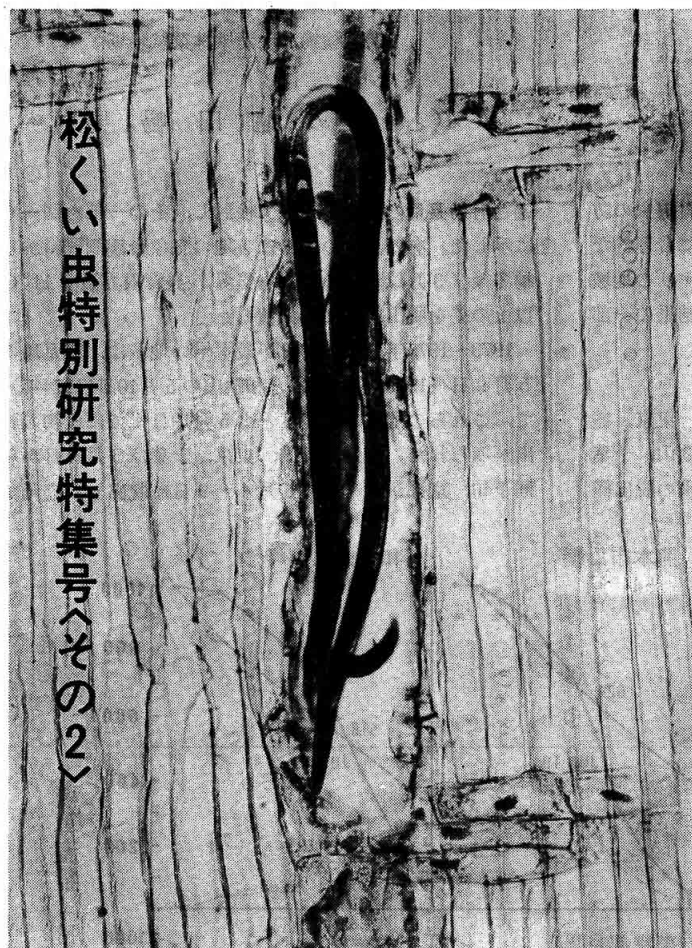 松くい虫特別研究特集号〈その2〉